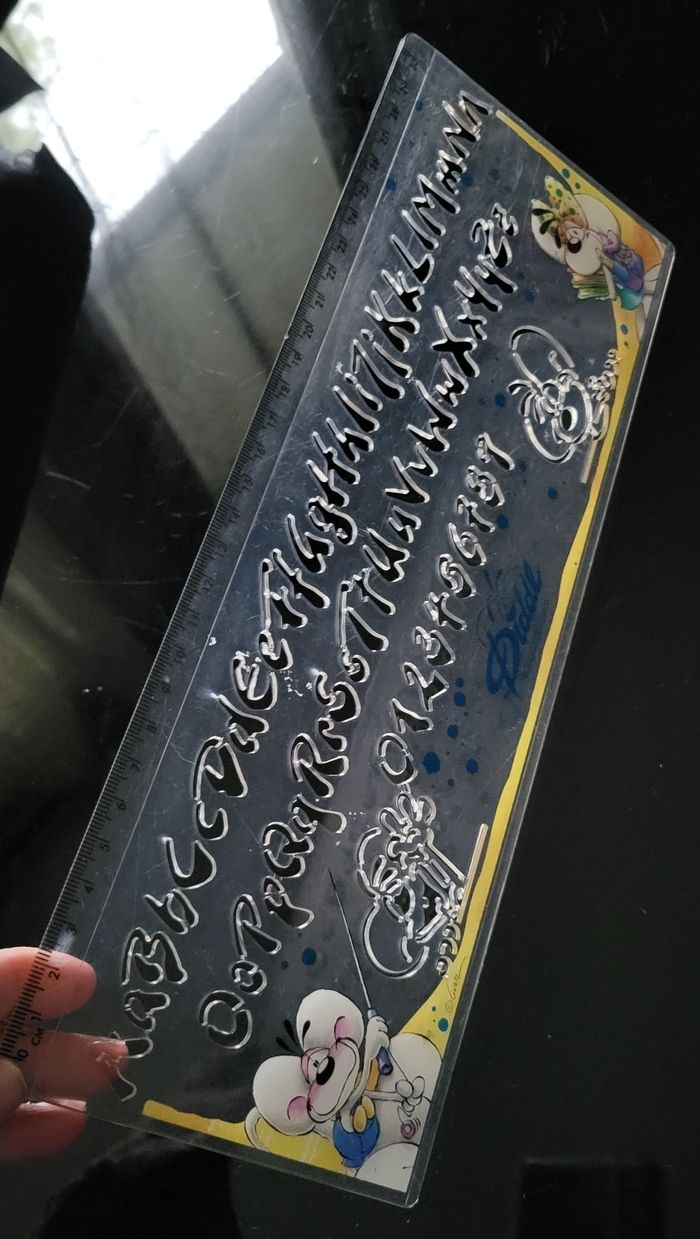 0 1 2 3 4 5 6 7 8 9 10 11 12 13 14 15 16 17 18 19 20 21 22 23 24 25 26 27 28 29 30
CM
AaBbCcDdEeFfGgHhIiJjKkLlMmNn
OoPpQqRrSsTtUuVvWwXxYyZz
0123456789
Diddl